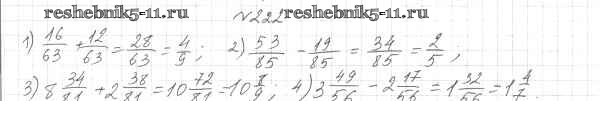 reshebnik5-11.ru №222 reshebnik5-11.ru
1) 16/63 + 12/63 = 28/63 = 4/9; 2) 53/85 - 19/85 = 34/85 = 2/5,
3) 8 34/81 + 2 38/81 = 10 72/81 = 10 8/9; 4) 3 49/56 - 2 17/56 = 1 32/56 = 1 4/7.